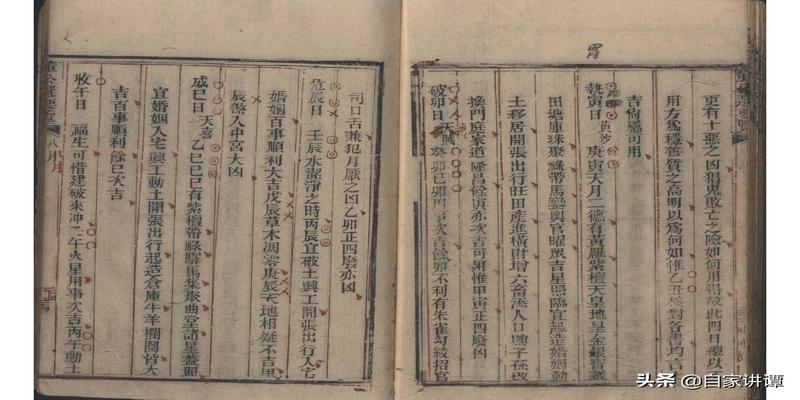 胃
更有十惡之凶猖鬼敗亡之險如何用得故此四日
用方爲穩善質之高明以爲何如惟乙丑核對各書均言
吉尙屬可用
執寅日 黃沙 庚寅天月二德有黃羅紫檀天皇地皇金銀寶藏
田塘庫珠聚祿帶馬變與官曜眾吉星照臨宜起造婚姻動
土移居開張出行旺田產進橫財增六畜添人口興子孫改
換門庭家道隆昌餘寅亦次吉可用惟甲寅正四廢凶
破卯日 天賊 癸卯己卯用事次吉餘卯不利有朱雀勾絞招官
司口舌兼犯月厭之凶乙卯正四廢亦凶
危辰日 壬辰水潔淨之時丙辰宜破土興工開張出行入宅
婚姻百事順利大吉戊辰草木凋零庚辰天地相疑不吉甲
辰煞入中宮大凶
成巳日 天喜 乙巳己巳有紫檀帶祿驛馬集聚曲堂諸星蓋照
宜婚姻入宅興工動土開張出行起造倉庫牛羊欄圈皆大
吉百事順利餘巳次吉
收午日 福生可惜建破來冲二午火星用事次吉丙午動土
八月
頭条 @自家讲谭